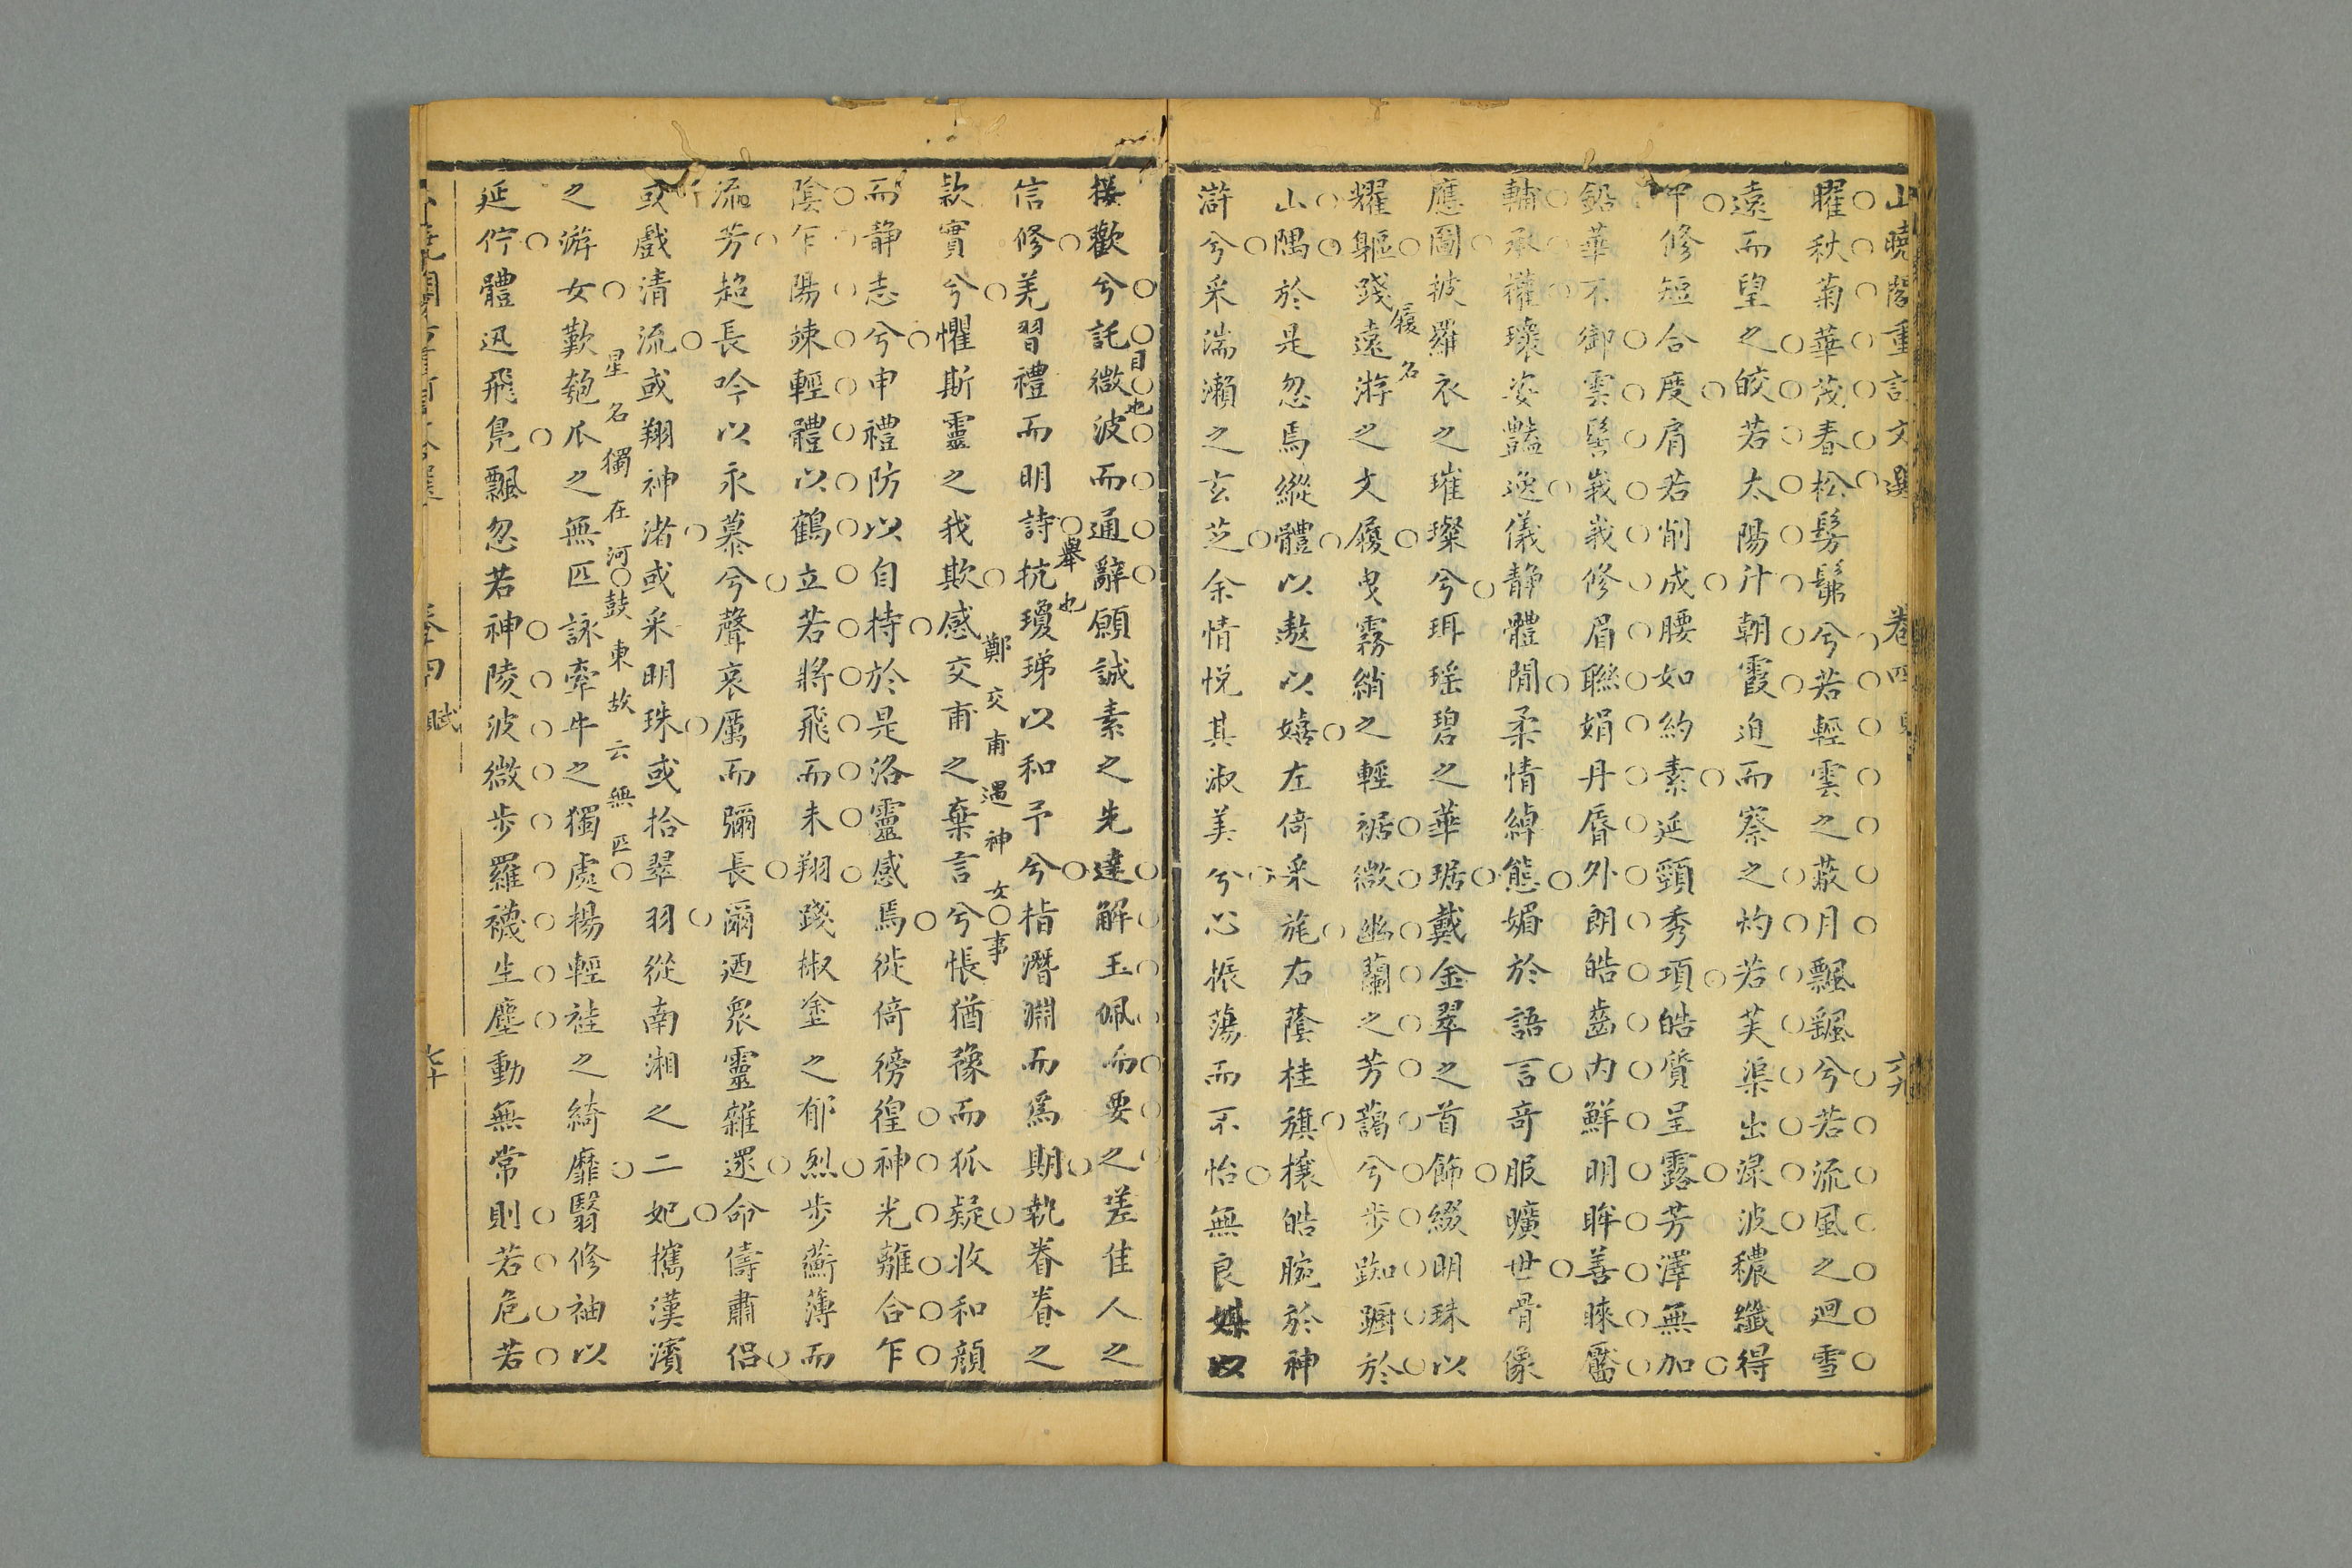 山曉閣重訂文選 卷四 六九
曜秋菊華茂春松髣髴兮若輕雲之蔽月飄颻兮若流風之迴雪
遠而望之皎若太陽汁朝霞迫而察之灼若芙渠出淥波穠纖得
中修短合度肩若削成腰如約素延頸秀項皓質呈露芳澤無加
鉛華不御雲髻峩峩修眉聯娟丹脣外朗皓齒內鮮明眸善睞靨
輔承權瓌姿豔逸儀静體閒柔情綽態媚於語言奇服曠世骨像
應圖披羅衣之璀璨兮珥瑶碧之華琚戴金翠之首飾綴明珠以
履名
耀軀踐遠游之文履曳霧綃之輕裾微幽蘭之芳藹兮步踟蹰於
山隅於是忽焉縱體以遨以嬉左倚采旄右蔭桂旗攘皓腕於神
滸兮采湍瀨之玄芝余情悦其淑美兮心振蕩而不怡無良媒以
目也
接歡兮託微波而通辭願誠素之先達解玉佩而要之嗟佳人之
舉也
信修羌習禮而明詩抗瓊珶以和予兮指潛淵而爲期執眷眷之
鄭交甫遇神女事
款實兮懼斯靈之我欺感交甫之棄言兮悵猶豫而狐疑收和顔
而静志兮申禮防以自持於是洛靈感焉徙倚徬徨神光離合乍
陰乍陽竦輕體以鶴立若將飛而未翔踐椒塗之郁烈步蘅薄而
流芳超長吟以永慕兮聲哀厲而彌長爾迺衆靈雜遝命儔肅侣
或戲清流或翔神渚或采明珠或拾翠羽從南湘之二妃攜漢濱
星名獨在河鼓東故云無匹
之游女歎匏瓜之無匹詠牽牛之獨處楊輕袿之綺靡翳修袖以
延佇體迅飛鳧飄忽若神陵波微步羅襪生塵動無常則若危若
卷四 賦 七十